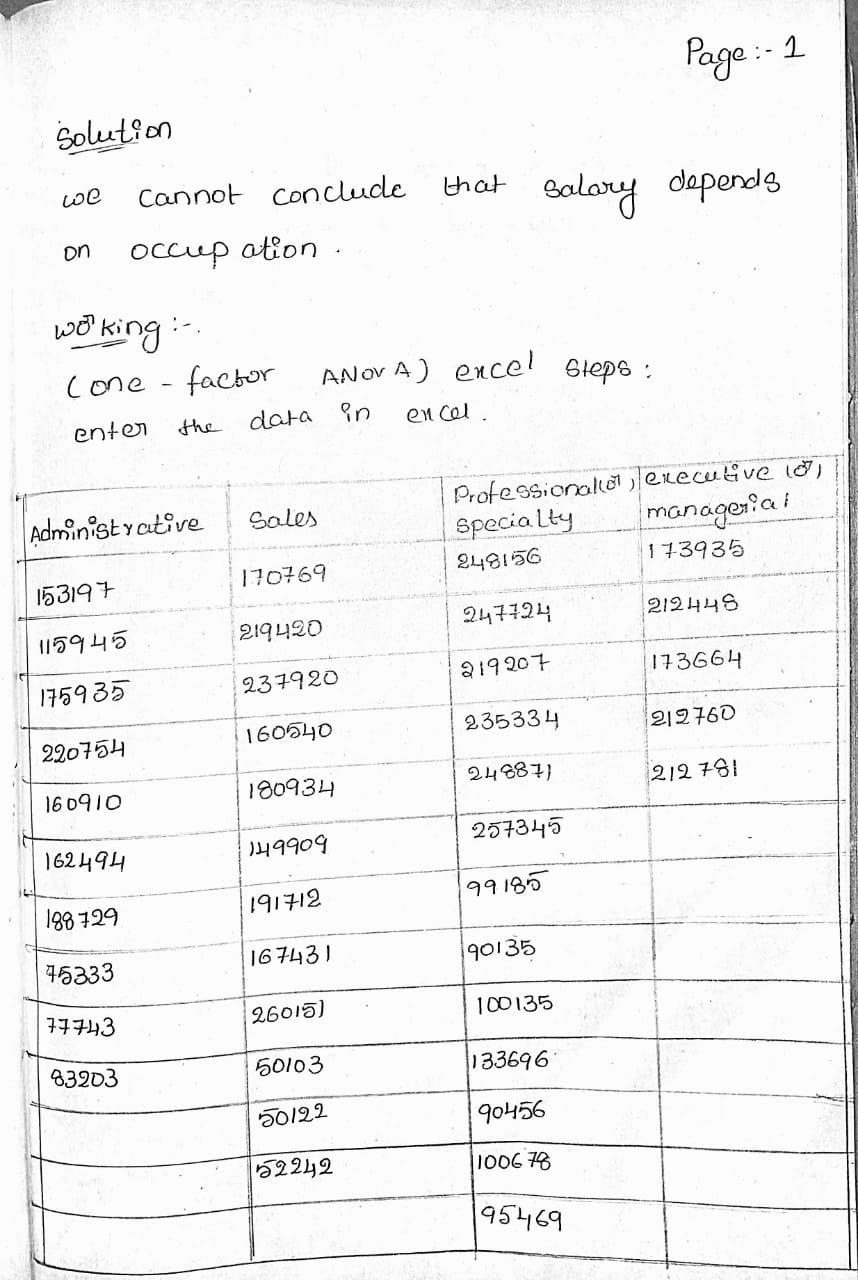 Page :- 1
Solution
we cannot conclude that salary depends
on occupation .
working :-.
(one - factor ANOVA) excel steps :
enter the data in excel .
Administrative Sales Professional(or) specialty executive (or) managerial
153197 170769 248156 173935
115945 219420 247724 212448
175935 237920 219207 173664
220754 160540 235334 212760
160910 180934 248871 212781
162494 149909 257345
188729 191712 99185
75333 167431 90135
77743 260151 100135
83203 50103 133696
50122 90456
52242 100678
95469